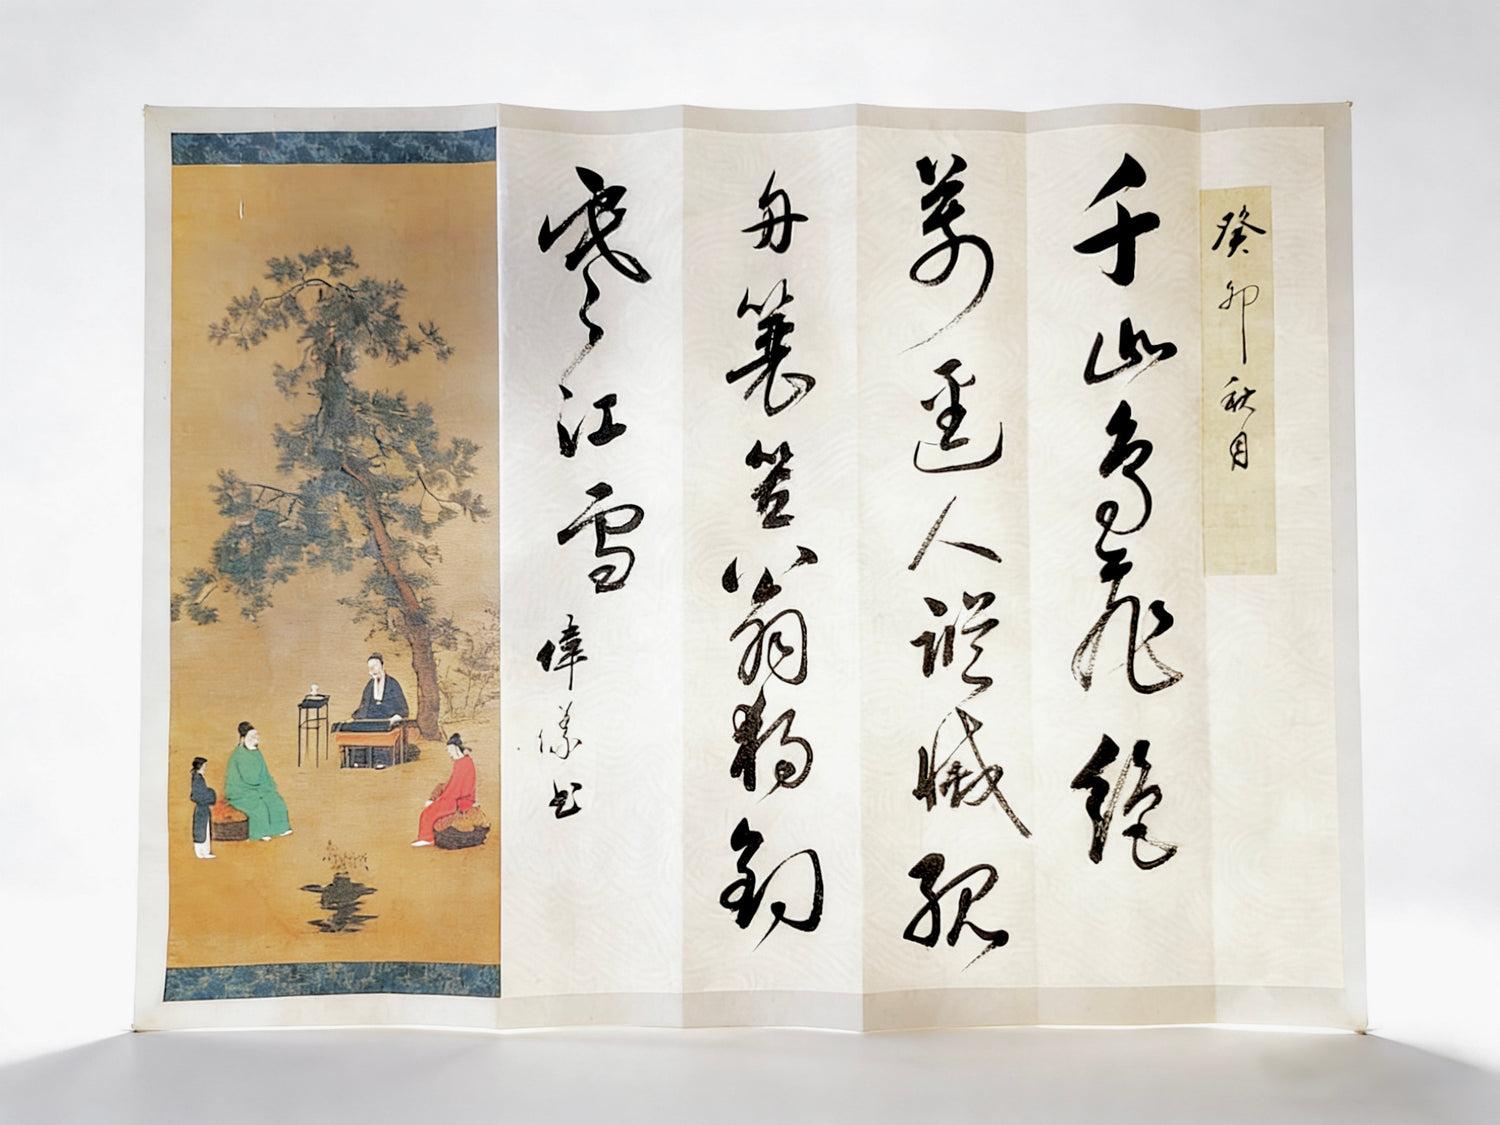 癸卯秋月
千山鳥飛絕
萬逕人蹤滅孤
舟簑笠翁獨釣
寒江雪
偉儀书